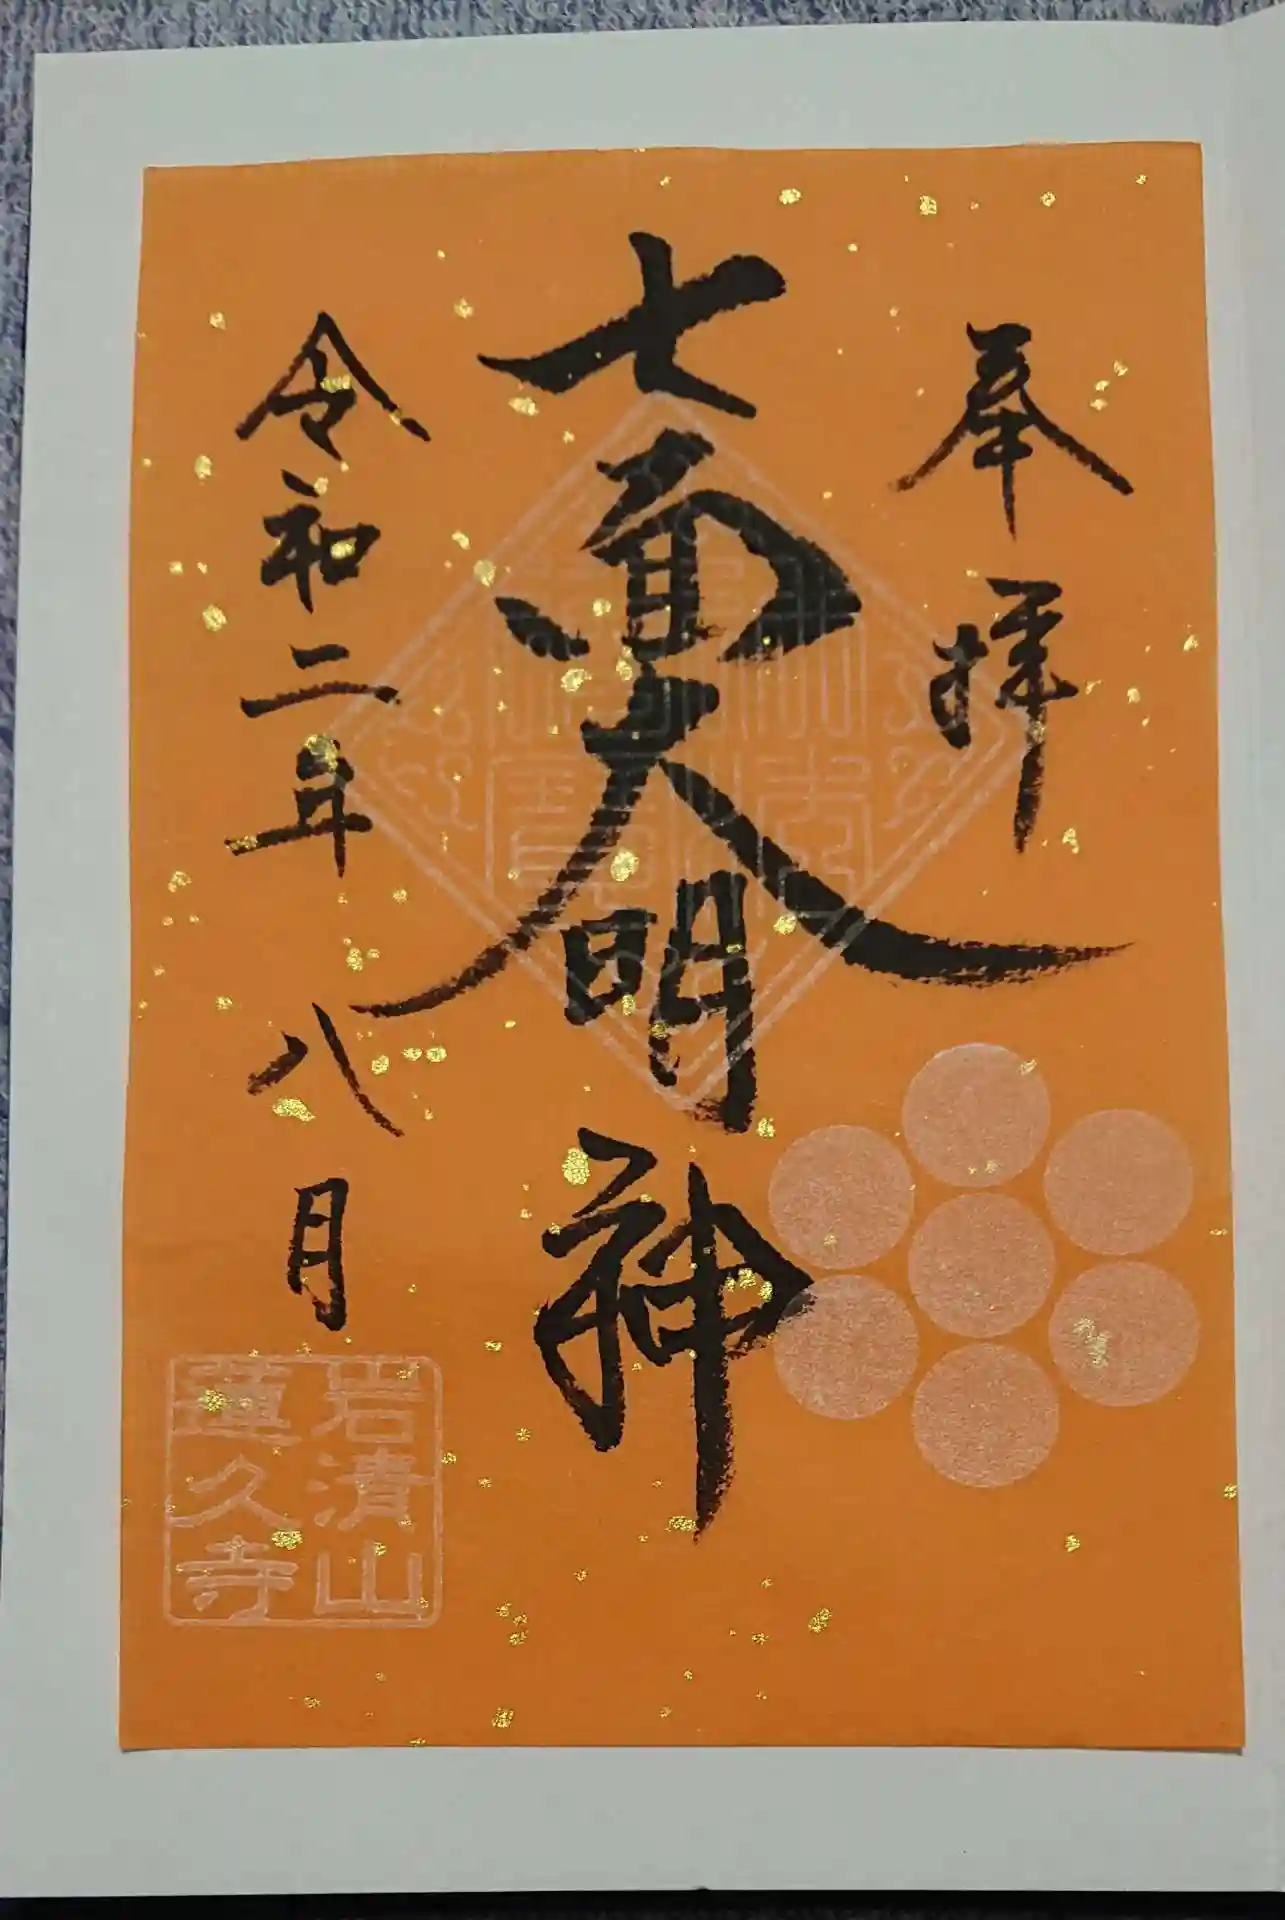 奉拝
七面大明神
令和二年八月
岩清山
蓮久寺